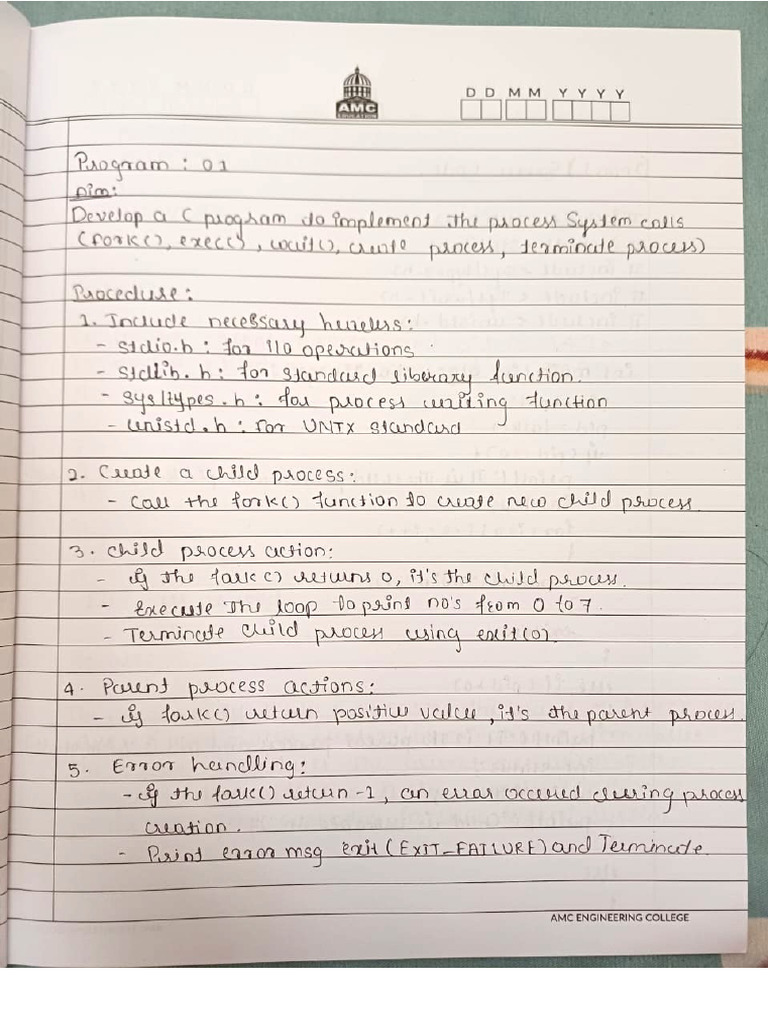 AMC
EDUCATION
D D M M Y Y Y Y
Program : 01
Aim:
Develop a C program to implement the process System calls
(fork(), exec(), wait(), create process, terminate process)
Procedure:
1. Include necessary headers:
- stdio.h : for I/O operations
- stdlib.h : for standard liberary function.
- sys/types.h : for process waiting function
- unistd.h : for UNIX standard
2. Create a child process:
- Call the fork() function to create new child process.
3. Child process action:
- if the fork() returns 0, it's the child process.
- Execute The loop to print no's from 0 to 7.
- Terminate child process using exit(0).
4. Parent process actions:
- if fork() return positive value, it's the parent process.
5. Error handling:
- if the fork() return -1, an error occured during process
creation.
- Print error msg exit(EXIT_FAILURE) and Terminate.
AMC ENGINEERING COLLEGE